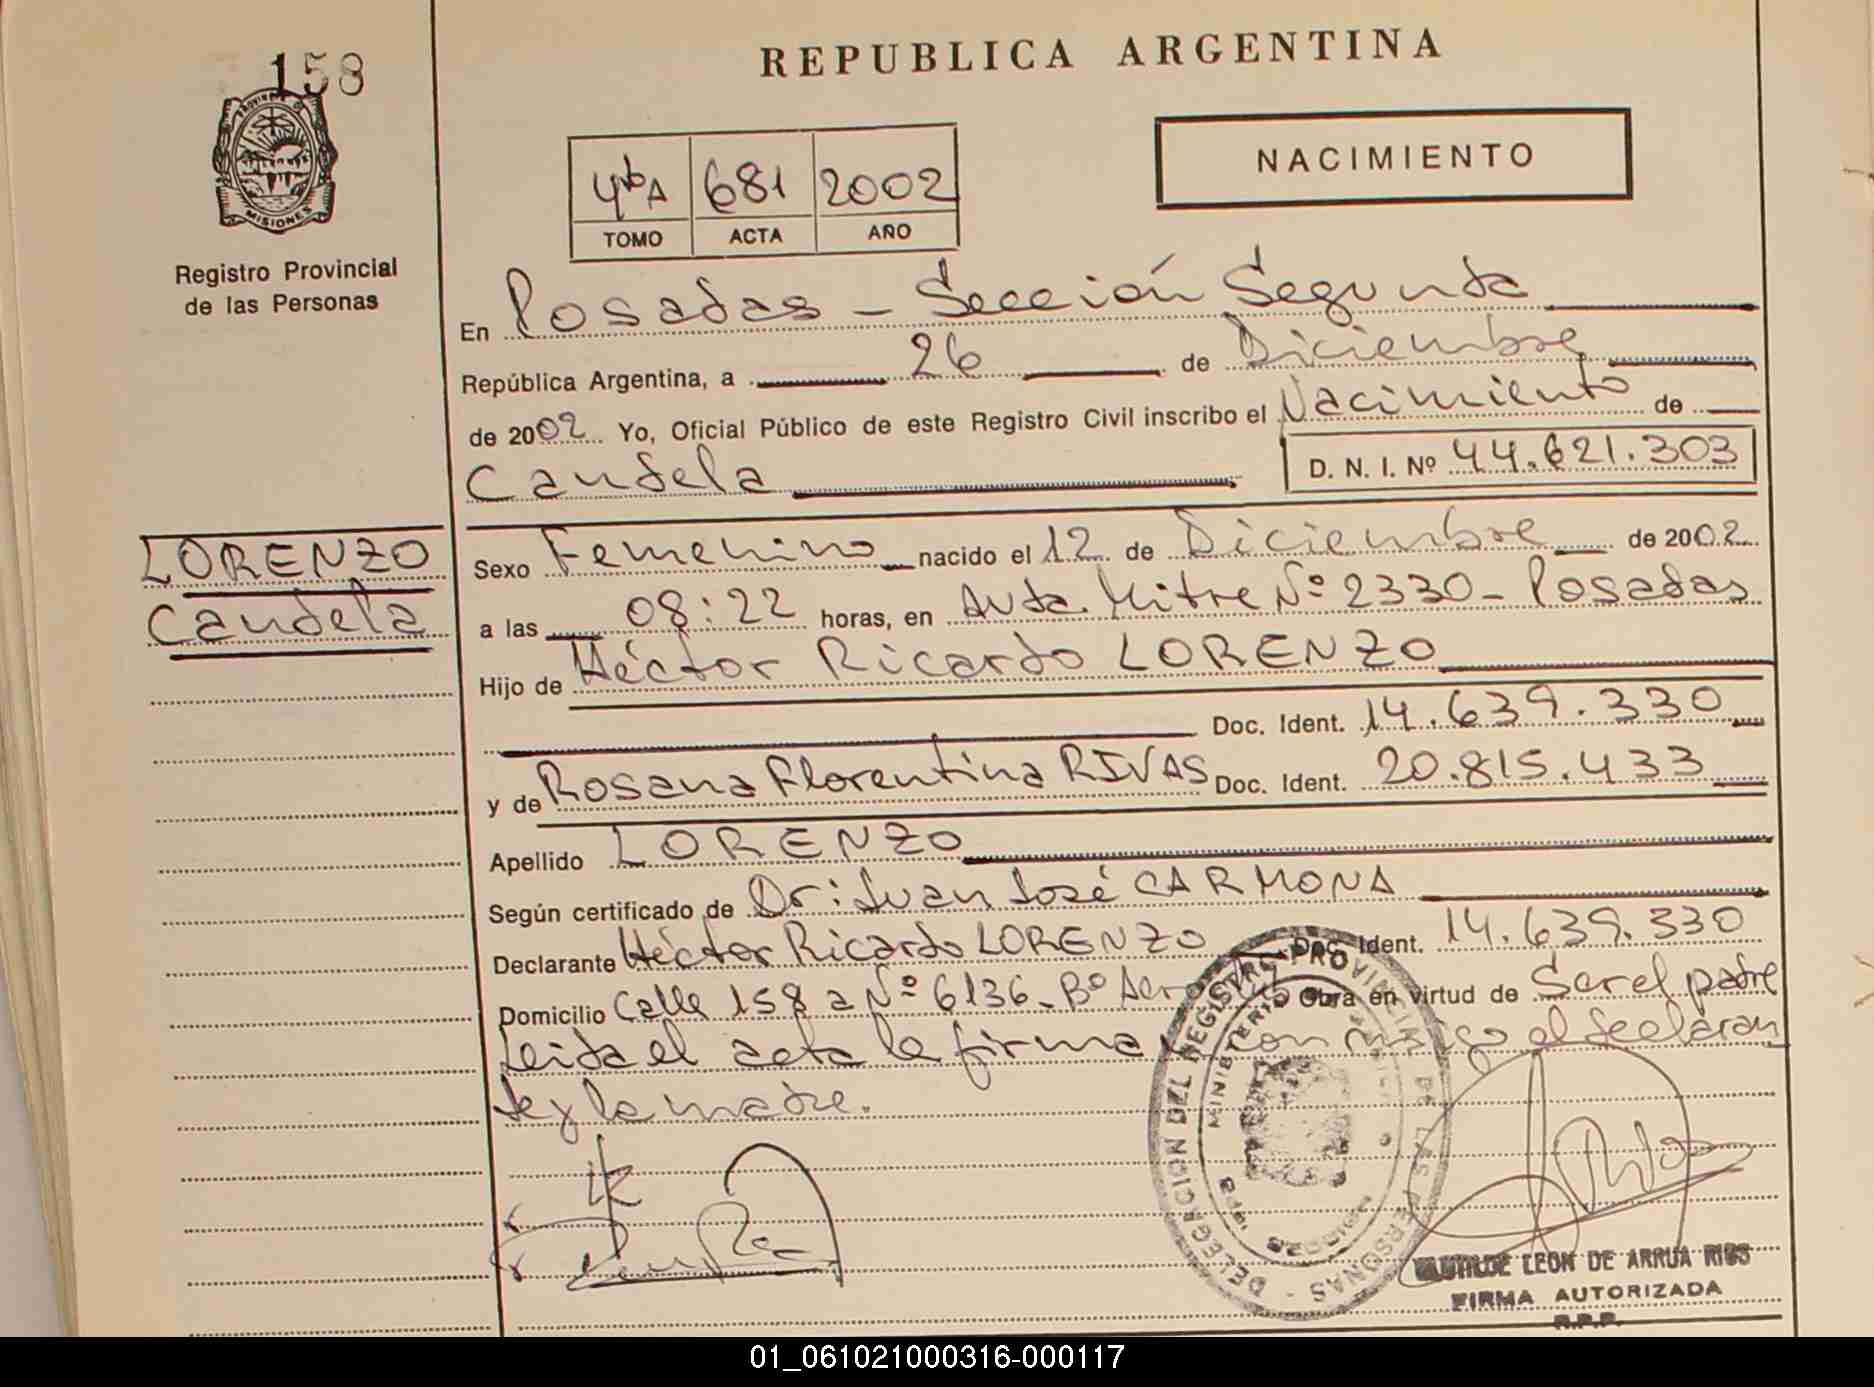 158
REPUBLICA ARGENTINA
PROVINCIA DE MISIONES
Registro Provincial
de las Personas
NACIMIENTO
4ºA 681 2002
TOMO ACTA AÑO
En Posadas - Sección Segunda
República Argentina, a 26 de Diciembre
de 2002 Yo, Oficial Público de este Registro Civil inscribo el Nacimiento de
Candela D. N. I. Nº 44.621.303
LORENZO
Candela
Sexo Femenino nacido el 12 de Diciembre de 2002
a las 08:22 horas, en Avda. Mitre Nº 2330 - Posadas
Hijo de Héctor Ricardo LORENZO
Doc. Ident. 14.639.330
y de Rosana Florentina RIVAS Doc. Ident. 20.815.433
Apellido LORENZO
Según certificado de Dr: Juan José CARMONA
Declarante Héctor Ricardo LORENZO Doc. Ident. 14.639.330
Domicilio Calle 158 a Nº 6136 - Bº Obra en virtud de Ser el padre
Leida el acta la firma con migo el declaran
te y la madre.
DELEGACION DEL REGISTRO PROVINCIAL DE LAS PERSONAS
MINISTERIO
LEON DE ARRUA RIOS
FIRMA AUTORIZADA
R.P.P.
01_061021000316-000117